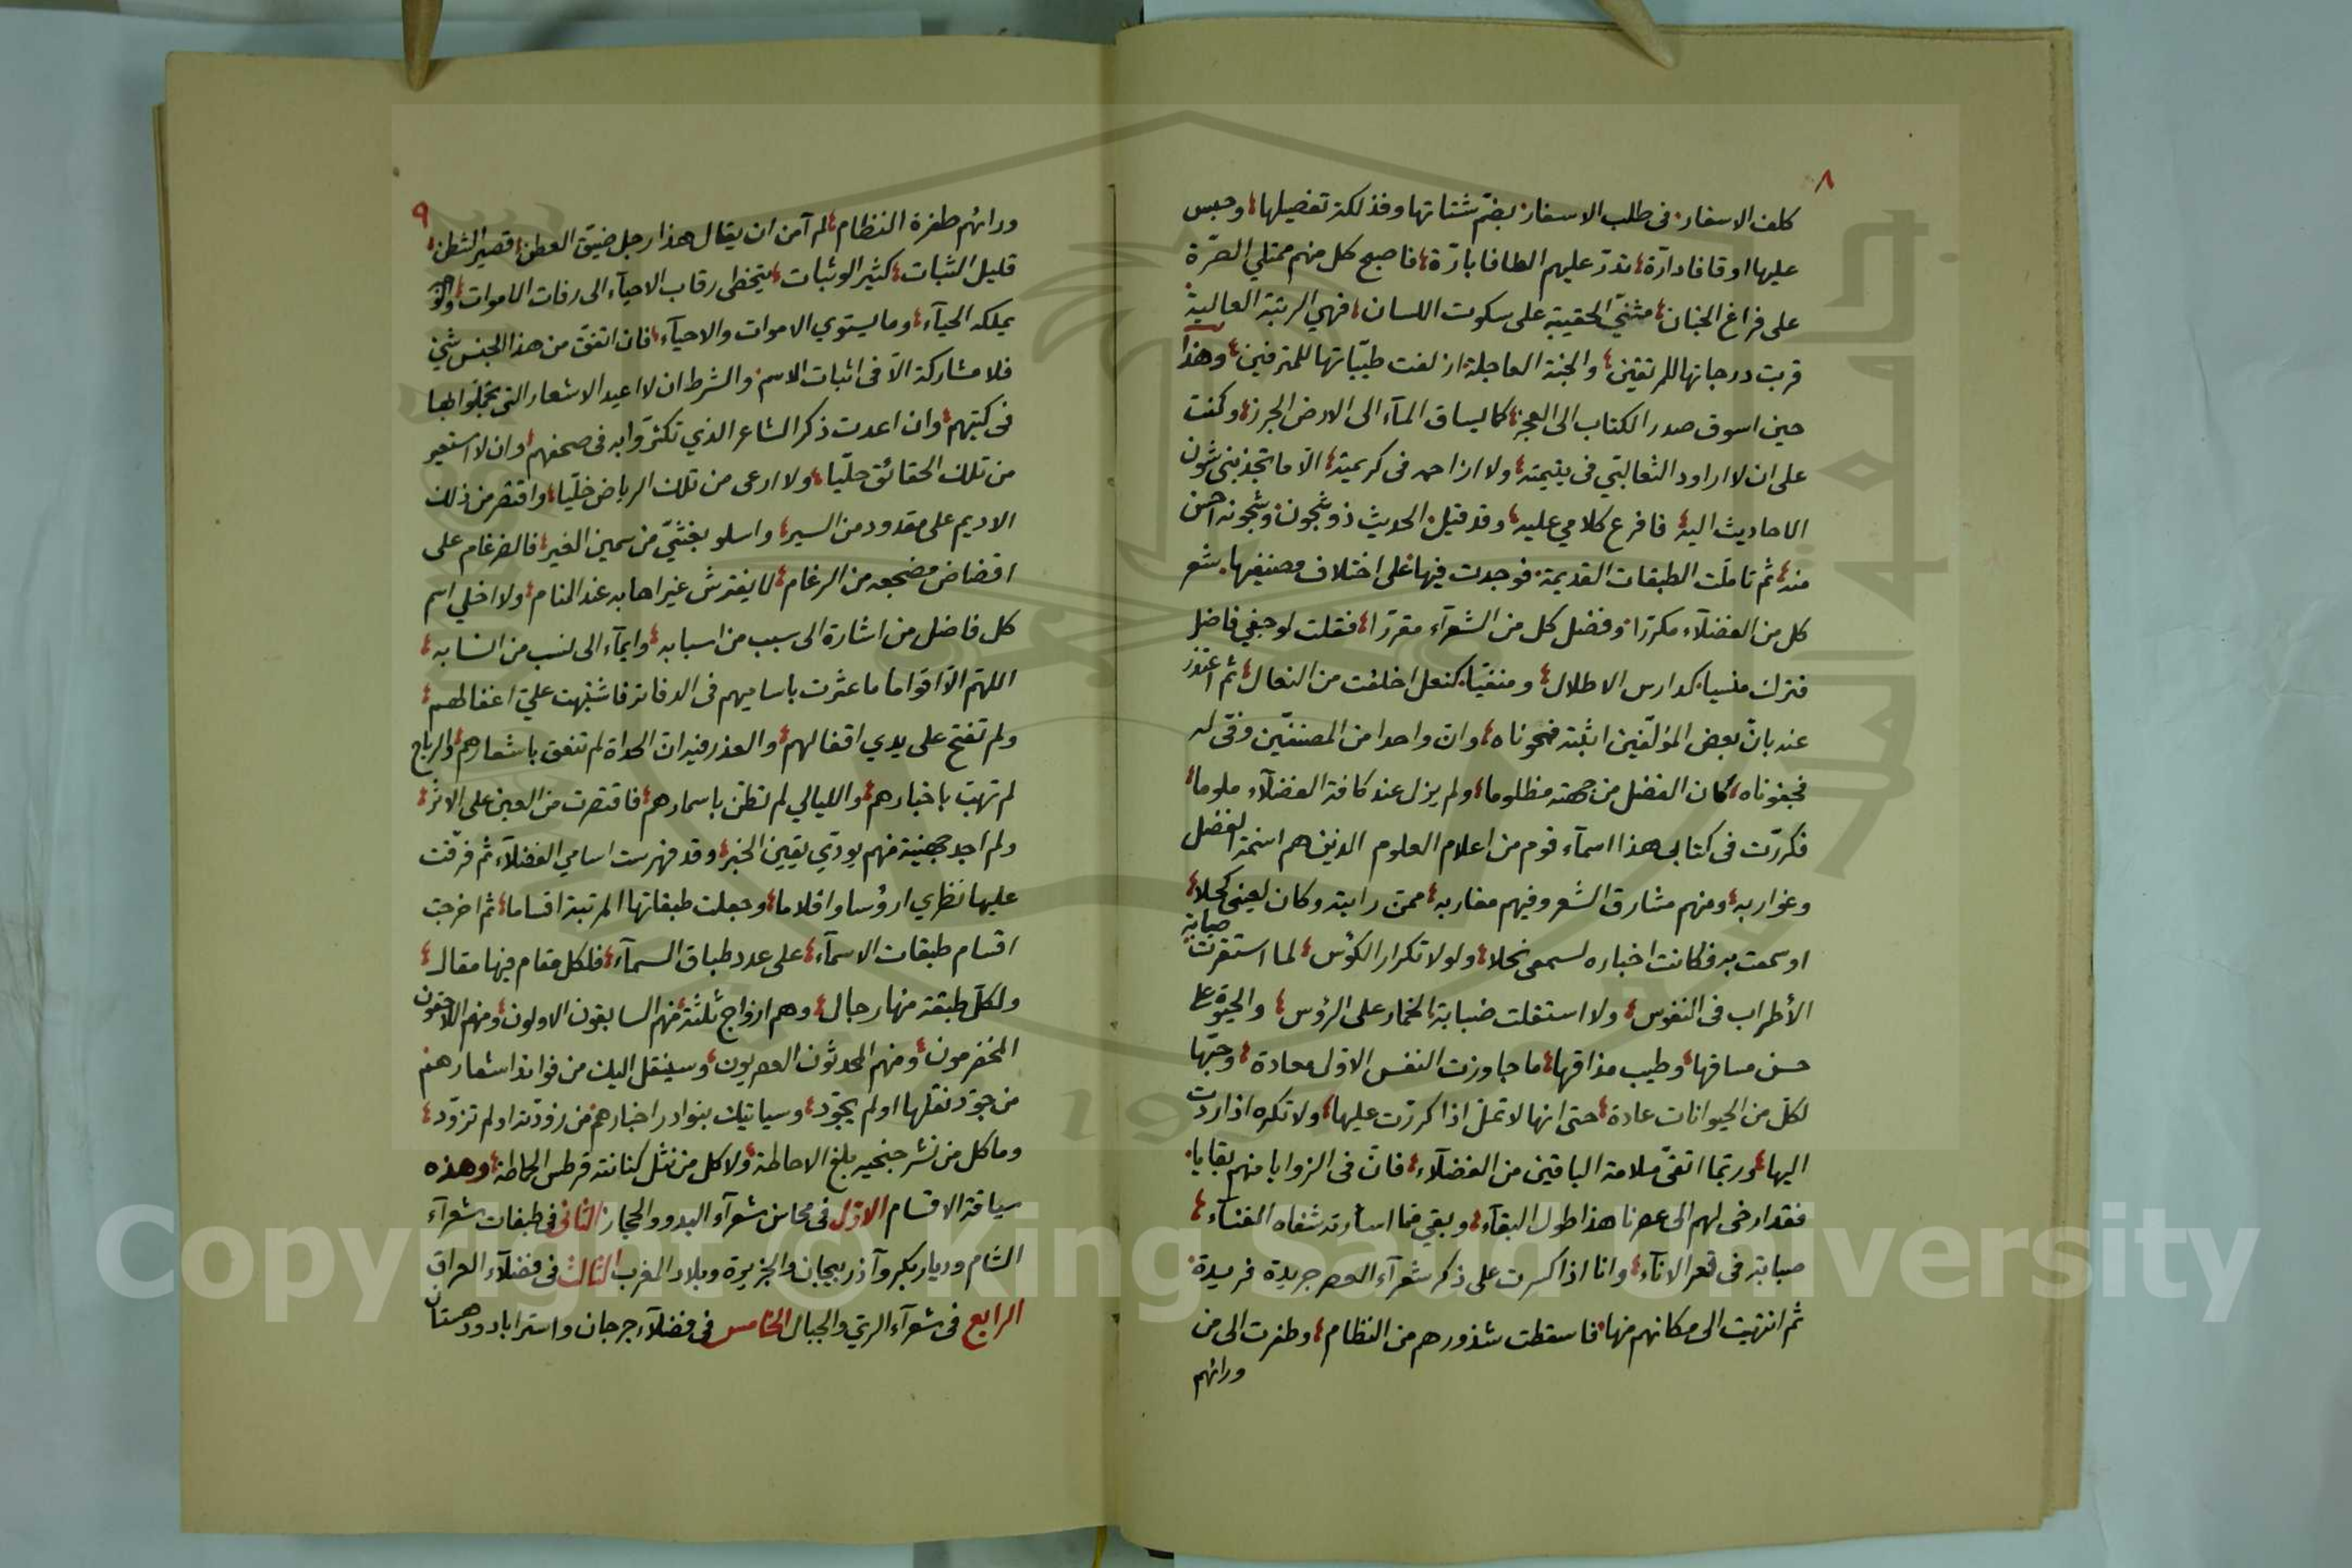 ٨
كلف الاسفار في طلب الاسفار بضم شتاتها وفذلكة تفصيلها وحبس
عليها اوقافا دارّة تدرّ عليهم الطافا بارّة فاصبح كل منهم ممتلي الصرّة
على فراغ الجنان مثنيّ الحقيبة على سكوت اللسان فهي الرتبة العالية
قربت درجاتها للمرتقين والجنة العاجلة ازلفت طيّباتها للمترفين وهذا
حين اسوق صدر الكتاب الى العجز كما يساق المآء الى الارض الجرز وكنت
على ان لا اراود الثعالبّي في يتيمته ولا ازاحمه في كريمته الّا ما تجذبني شون
الاحاديث اليه فافرع كلامي عليه وقد قيل الحديث ذو شجون وشجونه احسن
منه ثم تاملّت الطبقات القديمة فوجدت فيها على اختلاف مصنفيها شعر
كل من الفضلآء مكرّرا وفضل كل من الشعرآء مقرّرا فقلت لو جفي فاضل
فترك منسيا كدارس الاطلال ومنفيّا كنعل اخلقت من النعال ثم اعتذر
عنه بانّ بعض المؤلّفين اثبته فمحوناه وانّ واحدا من المصنفّين وفّى له
فجفوناه كان الفضل من جهته مظلوما ولم يزل عند كافة الفضلآء ملوما
فكررّت في كتابي هذا اسمآء قوم من اعلام العلوم الذين هم اسنمة الفضل
وغواربه ومنهم مشارق الشعر وفيهم مغاربه ممّن رايته وكان لعيني كحلا
او سمعت به فكانت اخباره لسمعي نحلا ولولا تكرار الكؤس لما استقرت صبابة
الأطراب في النفوس ولا استقلت ضبابة الخمار على الرؤس والحيوة على
حسن مساقها وطيب مذاقها ما جاوزت النفس الاوّل معادة وحبّها
لكلّ من الحيوانات عادة حتى انها لا تملّ اذا كررّت عليها ولا تكره اذا اردّت
اليها وربّما اتفّق سلامة الباقين من الفضلآء فانّ في الزوايا منهم بقايا
فقد ارخى لهم الى عصرنا هذا طول البقآء وبقي ممّا اسأرته شفاه الفنآء
صبابة في قعر الانآء وانا اذا كسرت على ذكر شعرآء العصر جريدة فريدة
ثم انتهيت الى مكانهم منها فاسقطت شذورهم من النظام وطفرت الى من
ورائهم
٩
ورائهم طفرة النظام لم آمن ان يقال هذا رجل ضيّق العطن قصير الشطن
قليل الثبات كثير الوثبات يتخطى رقاب الاحيآء الى رفات الاموات
يملكه الحيآء وما يستوي الاموات والاحيآء فان اتفق من هذا الجنس شئ
فلا مشاركة الّا في اثبات الاسم والشرط ان لا اعيد الاشعار التي تجمّلوا بها
في كتبهم وان اعدت ذكر الشاعر الذي تكثّروا به في صحفهم وان لا استعير
من تلك الحقائق حلّيا ولا ارعى من تلك الرياض خلّيا واقتصر من ذلك
الاديم على مقدود من السير واسلو بغثّيّ من سمين الغير فالضرغام على
اقضاض مضجعه من الرغام لا يفترش غير اهابه عند المنام ولا اخلي اسم
كل فاضل من اشارة الى سبب من اسبابه وايمآء الى نسب من انسابه
اللهّم الّا اقواما ما عثرت باساميهم في الدفاتر فاشتبهت عليّ اغفالهم
ولم تفتح على يدي اقفالهم والعذر فيه انّ الحداة لم تنعق باشعارهم والرياح
لم تهبّ باخبارهم والليالي لم تطن باسمارهم فاقتصرت من العين على الاثر
ولم اجد جهينة منهم يودّي يقين الخبر وقد فهرست اسامي الفضلآء ثم فرّقت
عليها نظري ارؤسا واقلاما وجعلت طبقاتها المرتبة اقساما ثم اخرجت
اقسام طبقات الاسمآء على عدد طباق السمآء فلكل مقام فيها مقال
ولكلّ طبقة منها رجال وهم ازواج ثلثة منهم السابقون الاولون ومنهم اللاحقون
المخضرمون ومنهم المحدثون العصريون وسينقل اليك من فوائد اشعارهم
من جوّد نقلها او لم يجوّد وسياتيك بنوادر اخبارهم من زودّته او لم تزوّد
وما كل من نشر جنحيه بلغ الاحاطة ولا كل من نثل كنانته قرطس الحاطة وهذه
سياقة الاقسام الاوّل في محاسن شعرآء البدو والحجاز الثاني في طبقات شعرآء
الشام وديار بكر وآذربيجان والجزيرة وبلاد المغرب الثالث في فضلآء العراق
الرابع في شعرآء الريّ والجبال الخامس في فضلآء جرجان واستراباد ودهستان
Copyright © King Saud University